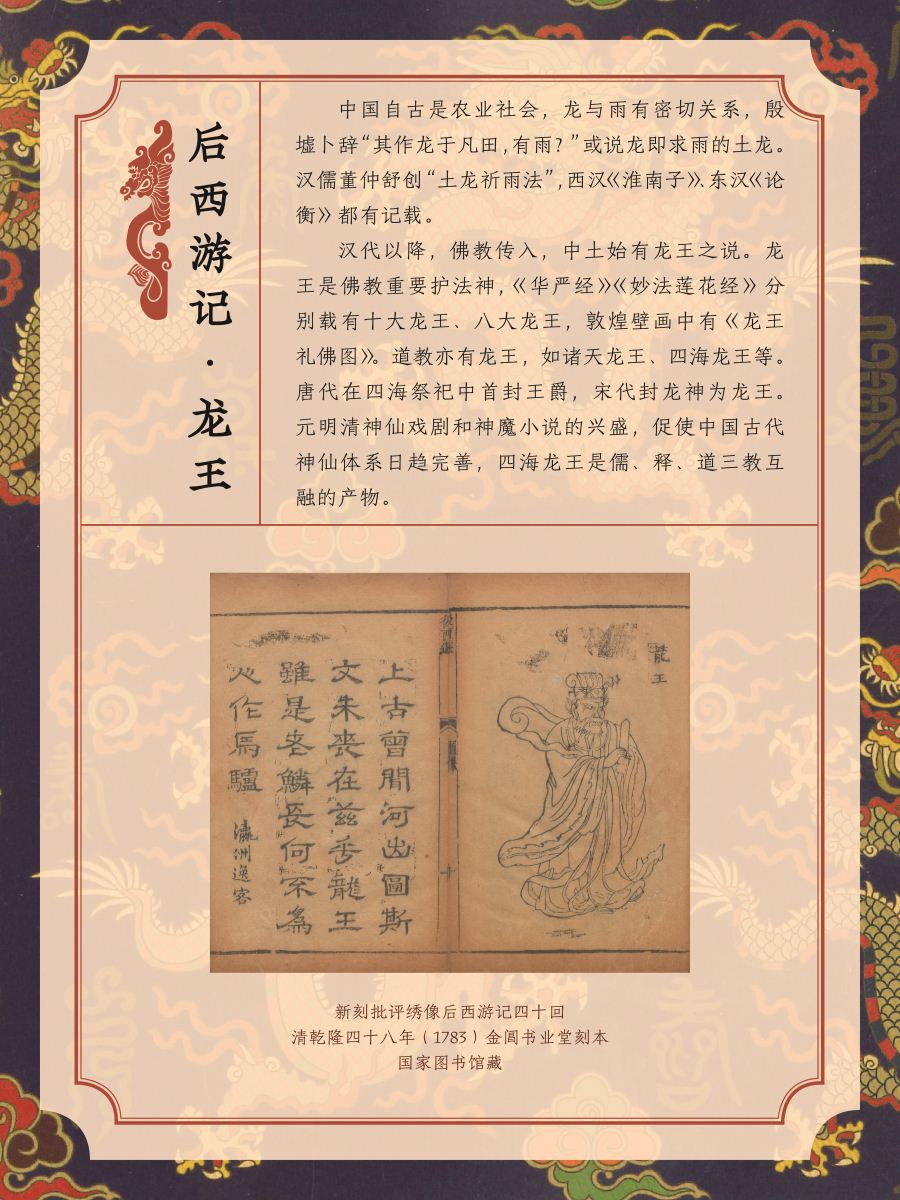 后西游记·龙王
中国自古是农业社会，龙与雨有密切关系，殷
墟卜辞“其作龙于凡田，有雨？”或说龙即求雨的土龙。
汉儒董仲舒创“土龙祈雨法”，西汉《淮南子》、东汉《论
衡》都有记载。
汉代以降，佛教传入，中土始有龙王之说。龙
王是佛教重要护法神，《华严经》《妙法莲花经》分
别载有十大龙王、八大龙王，敦煌壁画中有《龙王
礼佛图》。道教亦有龙王，如诸天龙王、四海龙王等。
唐代在四海祭祀中首封王爵，宋代封龙神为龙王。
元明清神仙戏剧和神魔小说的兴盛，促使中国古代
神仙体系日趋完善，四海龙王是儒、释、道三教互
融的产物。
龍王
十
上古曾聞河出圖斯
文未喪在兹乎龍王
雖是老鱗長何不為
心作馬驢
瀛洲逸客
新刻批评绣像后西游记四十回
清乾隆四十八年（1783）金阊书业堂刻本
国家图书馆藏